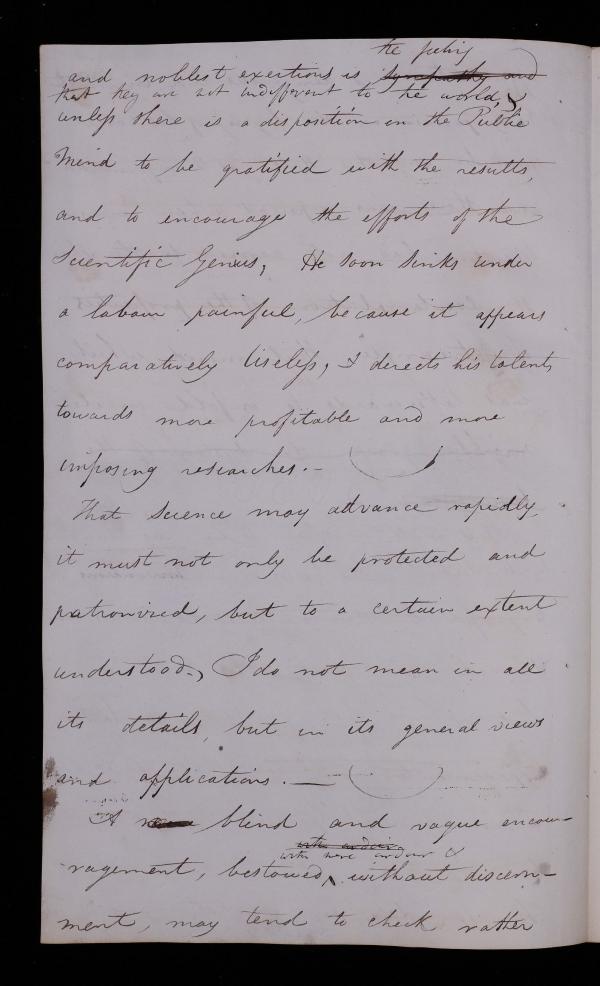 the feeling
and noblest exertions is sympathy and
that they are not indifferent to the world,
unless there is a disposition in the Public
Mind to be gratified with the results,
and to encourage the efforts of the
Scientific Genius, He soon sinks under
a labour painful, because it appears
comparatively Useless, & directs his talents
towards more profitable and more
imposing researches. -
That Science may advance rapidly
it must not only be protected and
patronized, but to a certain extent
understood. I do not mean in all
its details, but in its general views
and applications. —
A blind and vague encou-
with ardour
with mere ardour &
ragement, bestowed, without discern-
ment, may tend to check rather